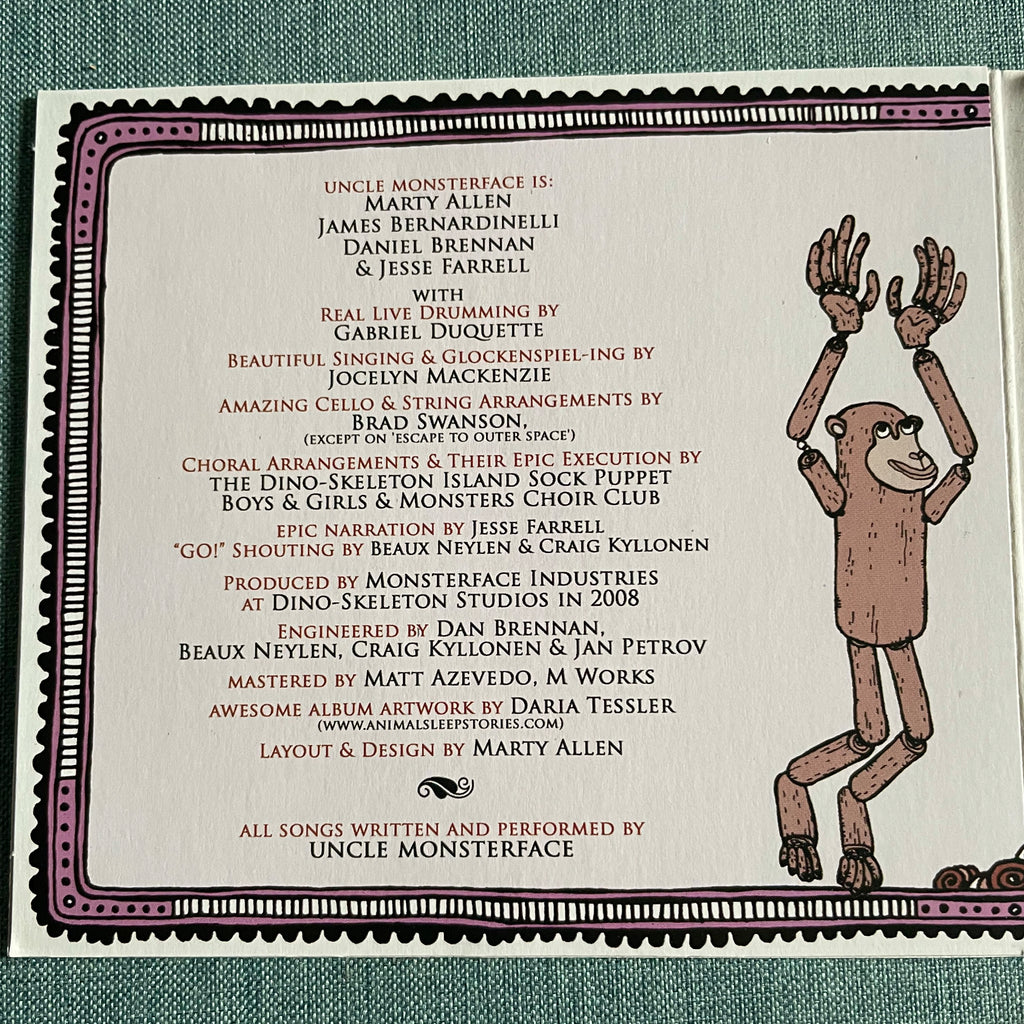 UNCLE MONSTERFACE IS:
MARTY ALLEN
JAMES BERNARDINELLI
DANIEL BRENNAN
& JESSE FARRELL
WITH
REAL LIVE DRUMMING BY
GABRIEL DUQUETTE
BEAUTIFUL SINGING & GLOCKENSPIEL-ING BY
JOCELYN MACKENZIE
AMAZING CELLO & STRING ARRANGEMENTS BY
BRAD SWANSON,
(EXCEPT ON 'ESCAPE TO OUTER SPACE')
CHORAL ARRANGEMENTS & THEIR EPIC EXECUTION BY
THE DINO-SKELETON ISLAND SOCK PUPPET
BOYS & GIRLS & MONSTERS CHOIR CLUB
EPIC NARRATION BY JESSE FARRELL
"GO!" SHOUTING BY BEAUX NEYLEN & CRAIG KYLLONEN
PRODUCED BY MONSTERFACE INDUSTRIES
AT DINO-SKELETON STUDIOS IN 2008
ENGINEERED BY DAN BRENNAN,
BEAUX NEYLEN, CRAIG KYLLONEN & JAN PETROV
MASTERED BY MATT AZEVEDO, M WORKS
AWESOME ALBUM ARTWORK BY DARIA TESSLER
(WWW.ANIMALSLEEPSTORIES.COM)
LAYOUT & DESIGN BY MARTY ALLEN
ALL SONGS WRITTEN AND PERFORMED BY
UNCLE MONSTERFACE